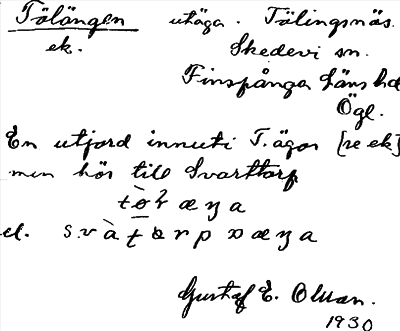 Tölängen utäga. Tälingsnäs.
ek. Skedevi sn.
Finspånga läns hd
Ögl.
En utjord innuti T. ägor [se ek]
men hör till Svarttorp
el.
Gustaf E. Olsson.
1930